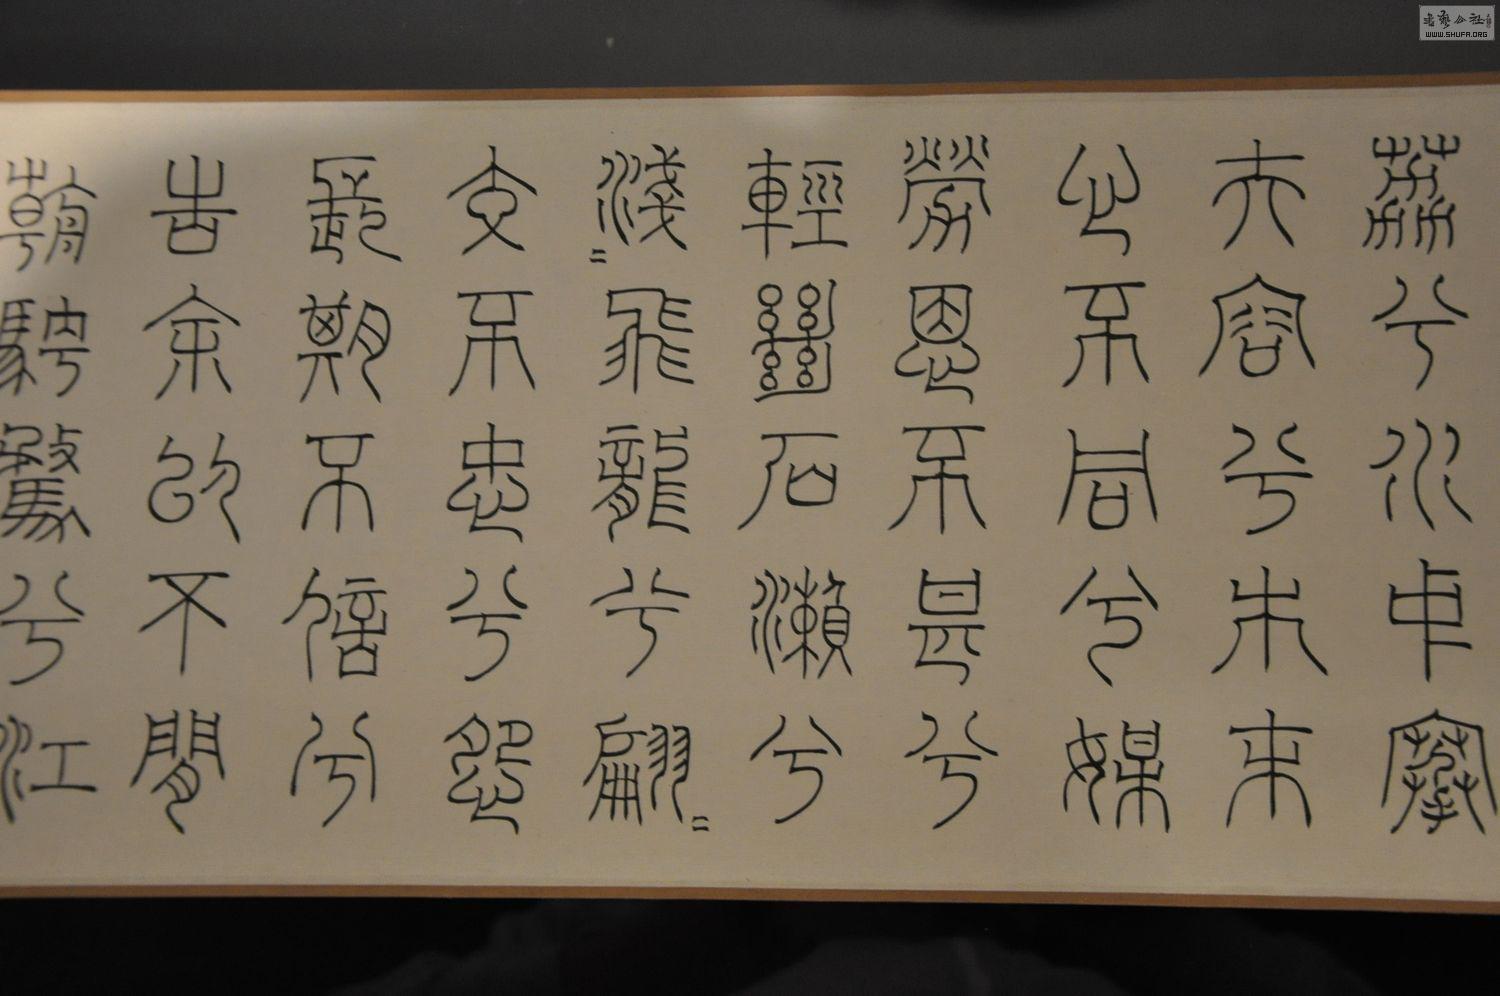 荔兮水中搴
夫容兮木末
心不同兮媒
勞恩不甚兮
輕絕石瀨兮
淺=飛龍兮翩=
交不忠兮怨
長期不信兮
告余以不閒
朝騁騖兮江
書藝公社
WWW.SHUFA.ORG